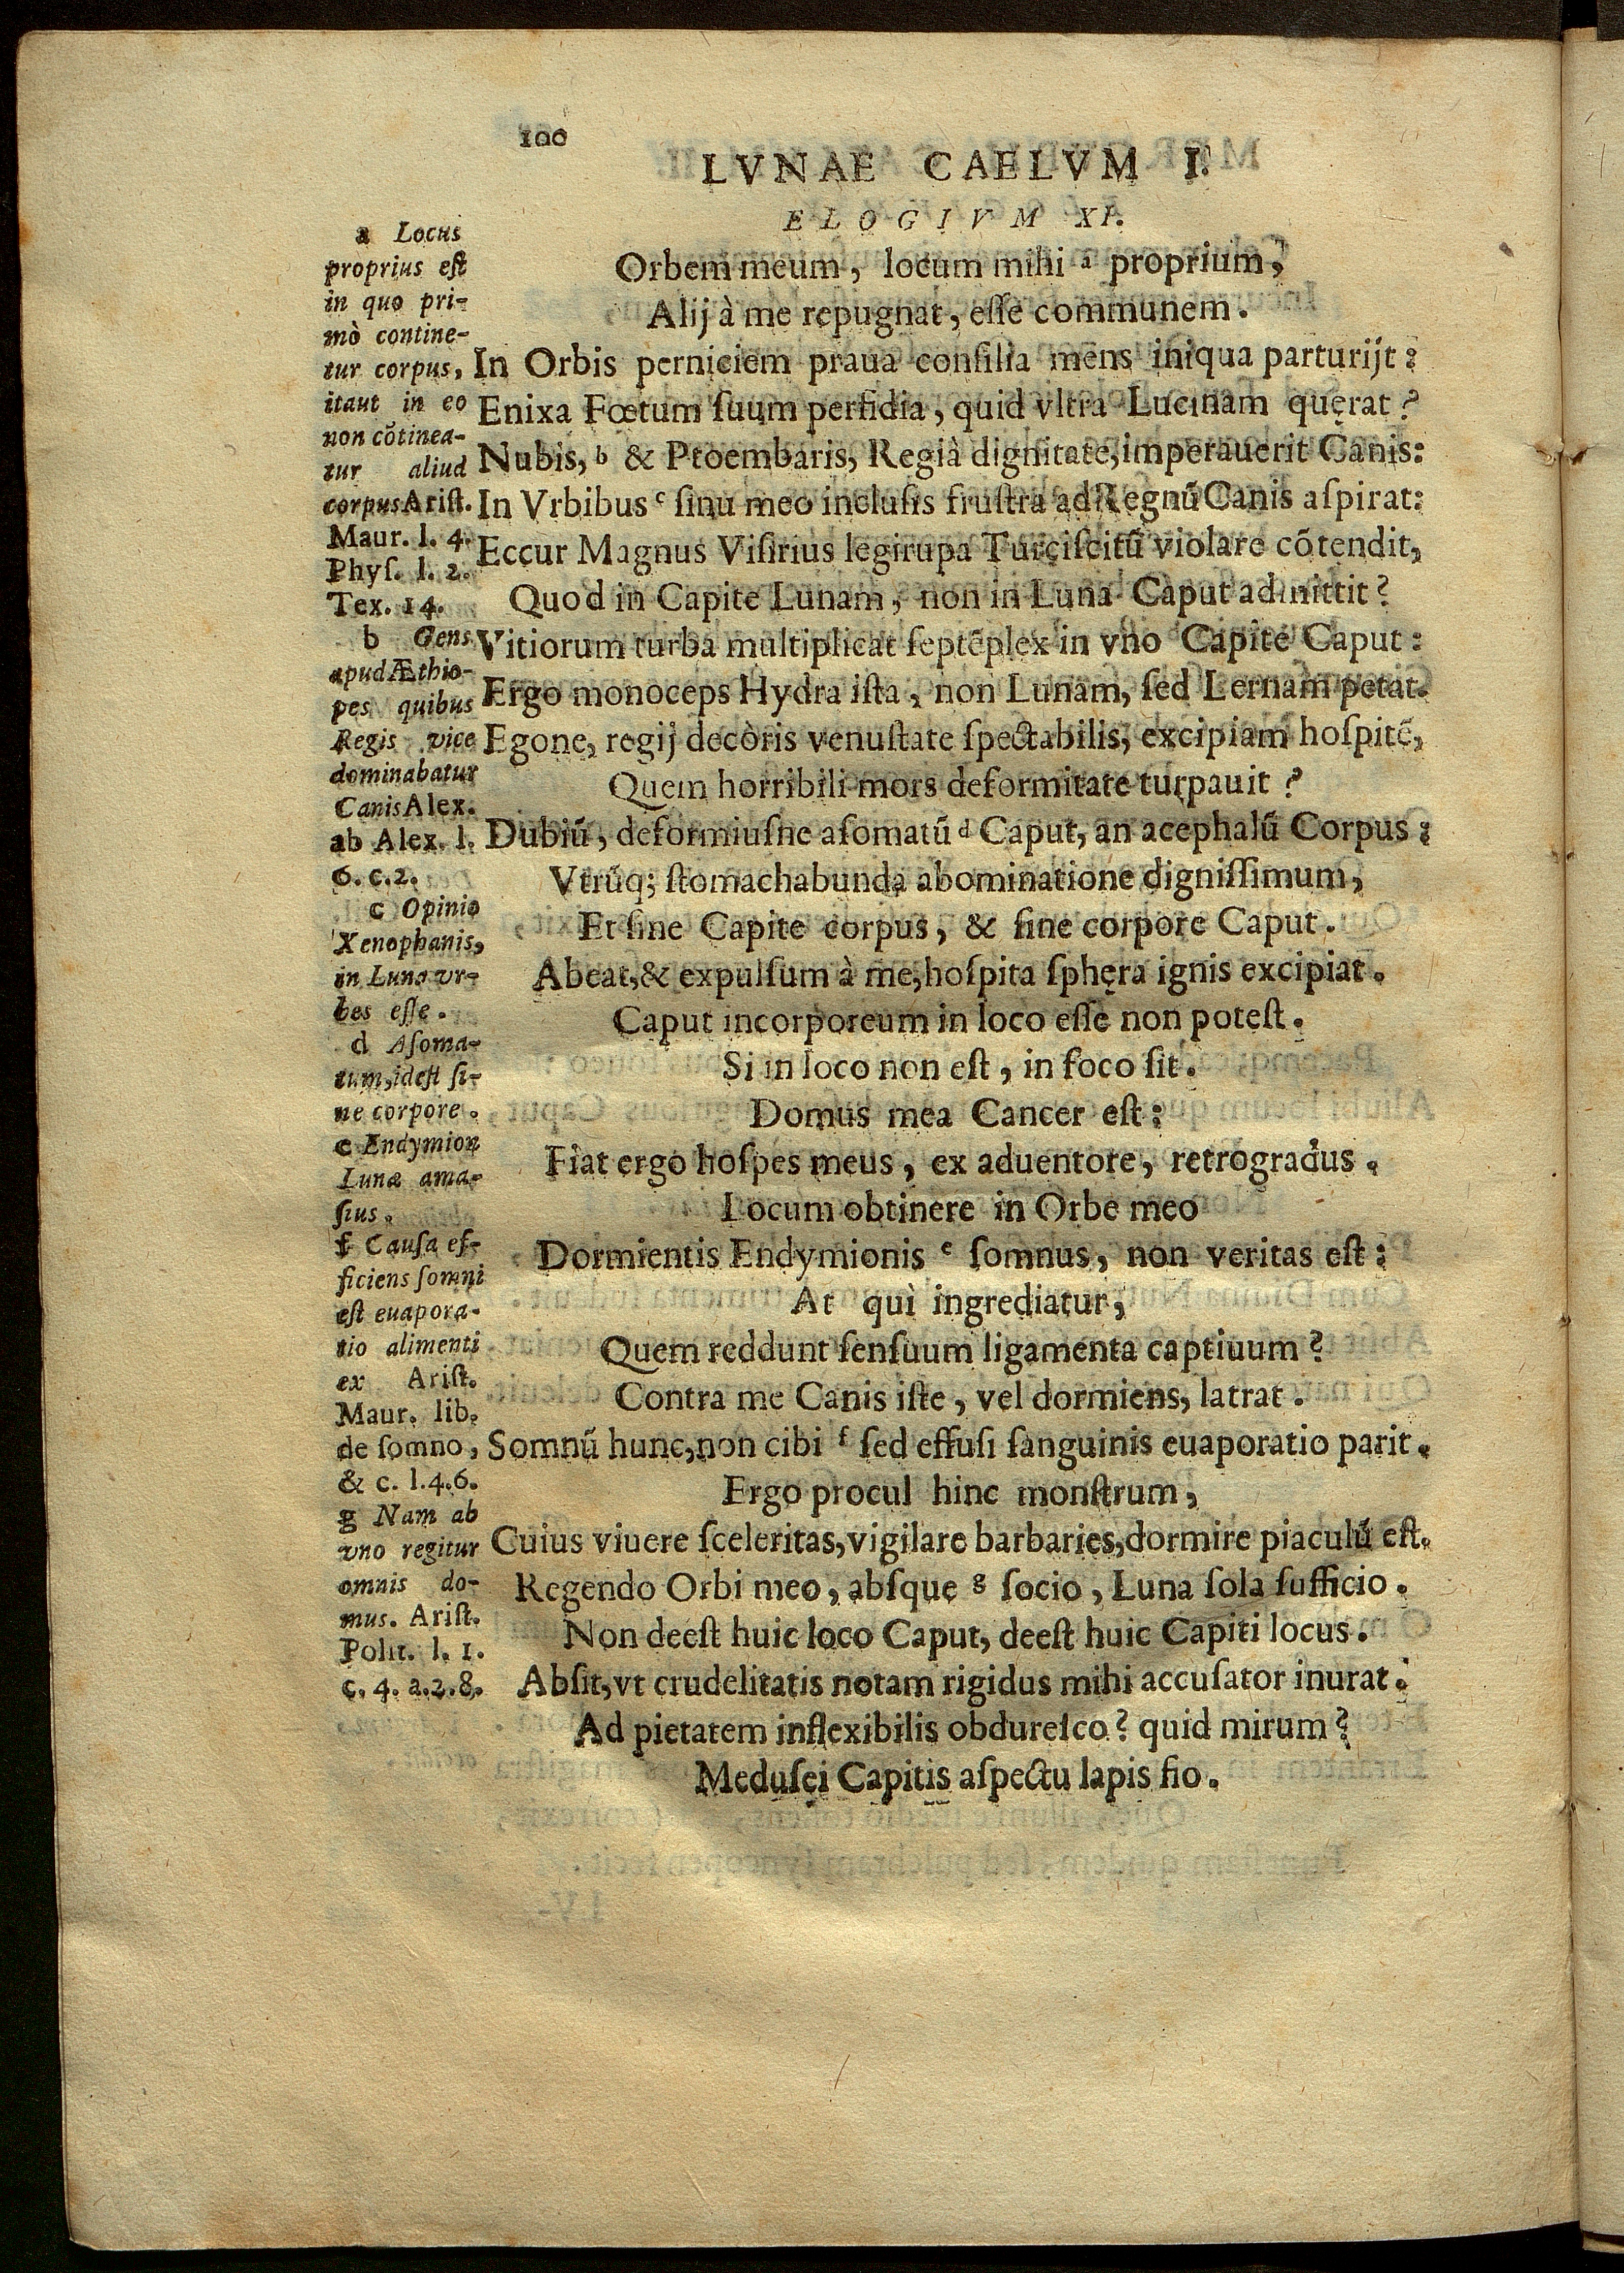 100
LVNAE CAELVM I.
ELOGIVM XI.
Orbem meum, locum mihi a proprium,
Alij à me repugnat, eſſe communem.
In Orbis perniciem praua conſilia mens iniqua parturijt:
Enixa Fœtum ſuum perfidia, quid vltra Lucinam quęrat?
Nubis, b & Ptoembaris, Regià dignitate, imperauerit Canis:
In Vrbibus c ſinu meo incluſis fruſtra ad Regnū Canis aſpirat:
Eccur Magnus Viſirius legirupa Turciſcitū violare cōtendit,
Quod in Capite Lunam, non in Luna Caput admittit?
Vitiorum turba multiplicat ſeptēplex in vno Capite Caput:
Ergo monoceps Hydra iſta, non Lunam, ſed Lernam petat.
Egone, regij decòris venuſtate ſpectabilis, excipiam hoſpitē,
Quem horribili mors deformitate turpauit?
Dubiū, deformiuſne aſomatū d Caput, an acephalū Corpus:
Vtrūq; ſtomachabunda abominatione digniſſimum,
Et ſine Capite corpus, & ſine corpore Caput.
Abeat, & expulſum à me, hoſpita ſphęra ignis excipiat.
Caput incorporeum in loco eſſe non poteſt.
Si in loco non eſt, in foco ſit.
Domus mea Cancer eſt:
Fiat ergo hoſpes meus, ex aduentore, retrogradus.
Locum obtinere in Orbe meo
Dormientis Endymionis e ſomnus, non veritas eſt:
At quì ingrediatur,
Quem reddunt ſenſuum ligamenta captiuum?
Contra me Canis iſte, vel dormiens, latrat.
Somnū hunc, non cibi f ſed effuſi ſanguinis euaporatio parit.
Ergo procul hinc monſtrum,
Cuius viuere ſceleritas, vigilare barbaries, dormire piaculū eſt.
Regendo Orbi meo, abſque g ſocio, Luna ſola ſufficio.
Non deeſt huic loco Caput, deeſt huic Capiti locus.
Abſit, vt crudelitatis notam rigidus mihi accuſator inurat.
Ad pietatem inflexibilis obdureſco? quid mirum?
Meduſęi Capitis aſpectu lapis fio.
a Locus
proprius eſt
in quo pri-
mò contine-
tur corpus,
itaut in eo
non cōtinea-
tur aliud
corpus Ariſt.
Maur. l. 4.
Phyſ. l. 2.
Tex. 14.
b Gens
apud Æthio-
pes quibus
Regis vice
dominabatur
Canis Alex.
ab Alex. l.
6. c. 2.
c Opinio
Xenophanis,
in Luna vr-
bes eſſe.
d Aſoma-
tum, ideſt ſi-
ne corpore.
e Endymion
Lunæ ama-
ſius.
f Cauſa ef-
ficiens ſomni
eſt euapora-
tio alimenti
ex Ariſt.
Maur. lib.
de ſomno,
& c. l. 4. 6.
g Nam ab
vno regitur
omnis do-
mus. Ariſt.
Polit. l. 1.
c. 4. a. 2. 8.